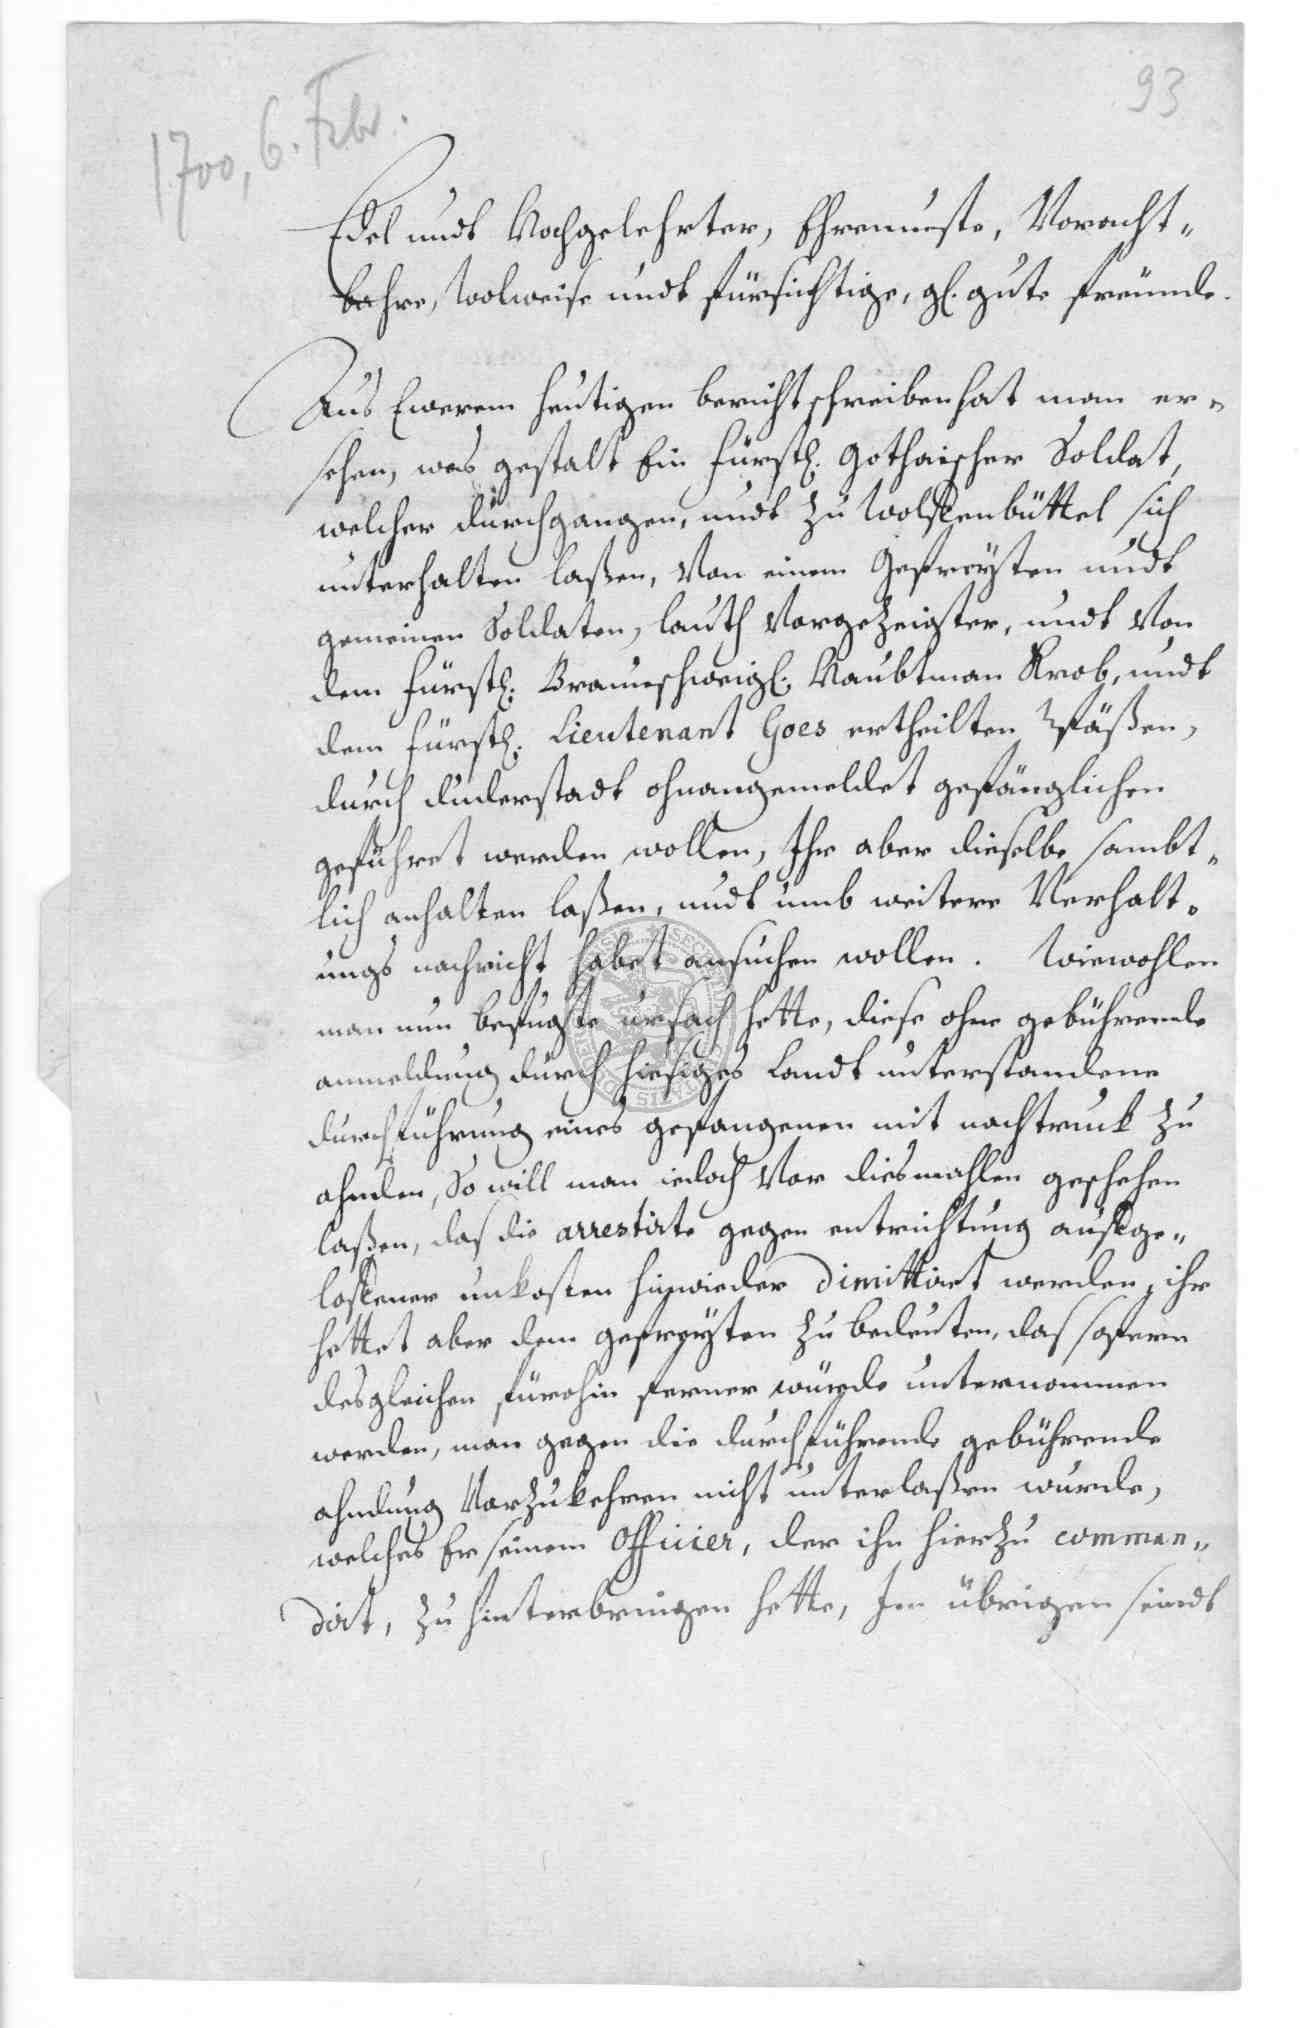 93
1700, 6. Febr.
Edel undt Hochgelehrter, Ehrenveste, Voracht-
bahre, Wolweise undt fürsichtige, gl. gute freünde.
Aus Ewerem heutigen berichtschreiben hat man er-
sehen, was gestalt Ein fürstl. Gothaischer Soldat,
welcher durchgangen, undt zu Wolffenbüttel sich
unterhalten laßen, Von einem Gefreyten undt
gemeinen Soldaten, lauth Vorgezeigter, undt Von
dem fürstl. Braunschweigl. Haubtman Krob, undt
dem fürstl. Lieutenant Goes ertheilten Päßen,
durch duderstadt ohnangemeldet gefänglichen
geführet werden wollen, Ihr aber dieselbe sambt-
lich anhalten laßen, undt umb weitere Verhalt-
ungs nachricht habet ansuchen wollen. Wiewohlen
man nun befugte ursach hette, diese ohne gebührende
anmeldung durch hiesiges Landt unterstandene
durchführung eines gefangenen mit nachtruck zu
ahnden, So will man iedoch Vor diesmahlen geschehen
laßen, das die arrestirte gegen entrichtung auffge-
loffener unkosten hinwieder dimittiret werden, ihr
hettet aber dem gefreyten zu bedeuten, das sofern
desgleichen fürohin ferner würde unternommen
werden, man gegen die durchführende gebührende
ahndung Vorzukehren nicht unterlaßen wurde,
welches Er seinem Officier, der ihn hierzu comman-
dirt, zu hinterbringen hette, Im übrigen seindt